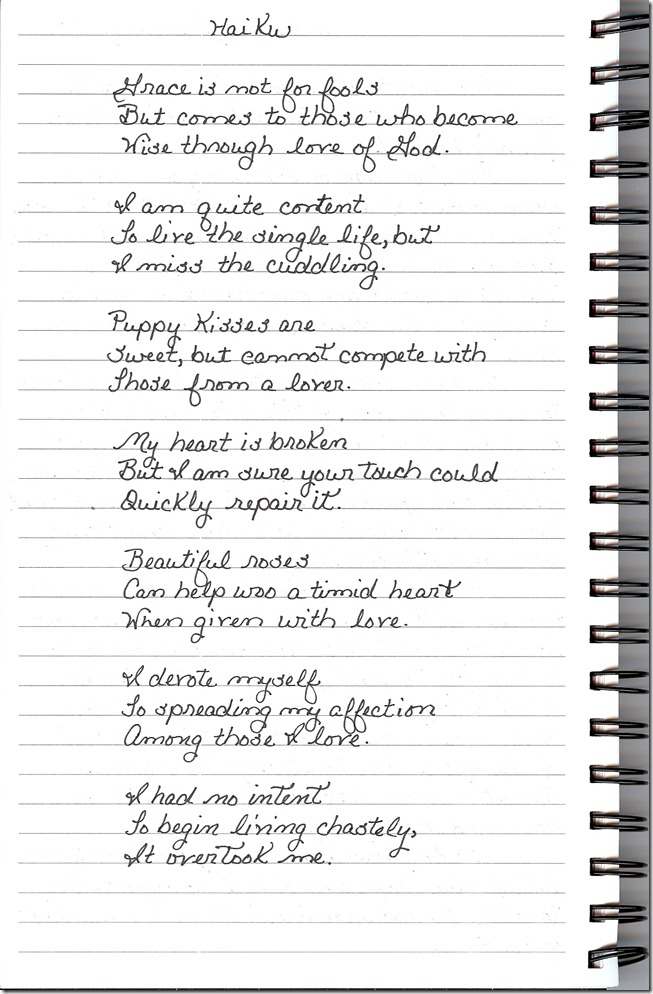 Haiku
Grace is not for fools
But comes to those who become
Wise through love of God.
I am quite content
To live the single life, but
I miss the cuddling.
Puppy Kisses are
Sweet, but cannot compete with
Those from a lover.
My heart is broken
But I am sure your touch could
Quickly repair it.
Beautiful roses
Can help woo a timid heart
When given with love.
I devote myself
To spreading my affection
Among those I love.
I had no intent
To begin living chastely,
It overtook me.